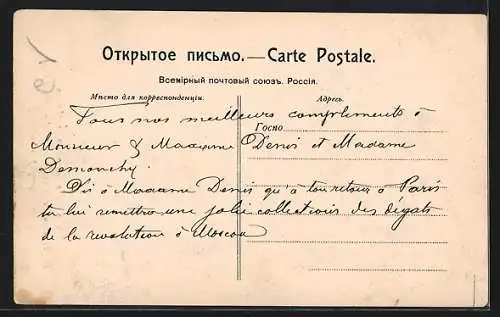 Открытое письмо. — Carte Postale.
Всемірный почтовый союзъ. Россія.
Мѣсто для корреспонденціи. Адресъ.
Tous nos meilleurs compliments à
Госпо
Monsieur & Madame Denis et Madame
Demonchy.
Dis à Madame Denis qu'à ton retour à Paris
tu lui remettras une jolie collections des dégats
de la revolution à Moscou